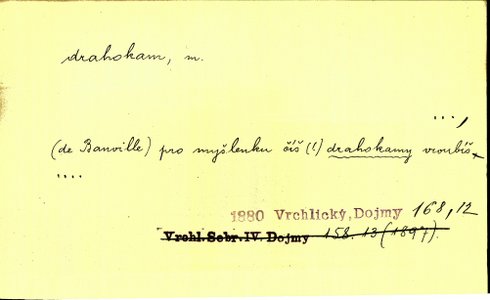 drahokam, m.
...,
(de Banville) pro myšlenku číš (!) drahokamy vroubíš
....
1880 Vrchlický, Dojmy 168, 12
Vrchl. Sebr. IV. Dojmy 158. 13 (1897).